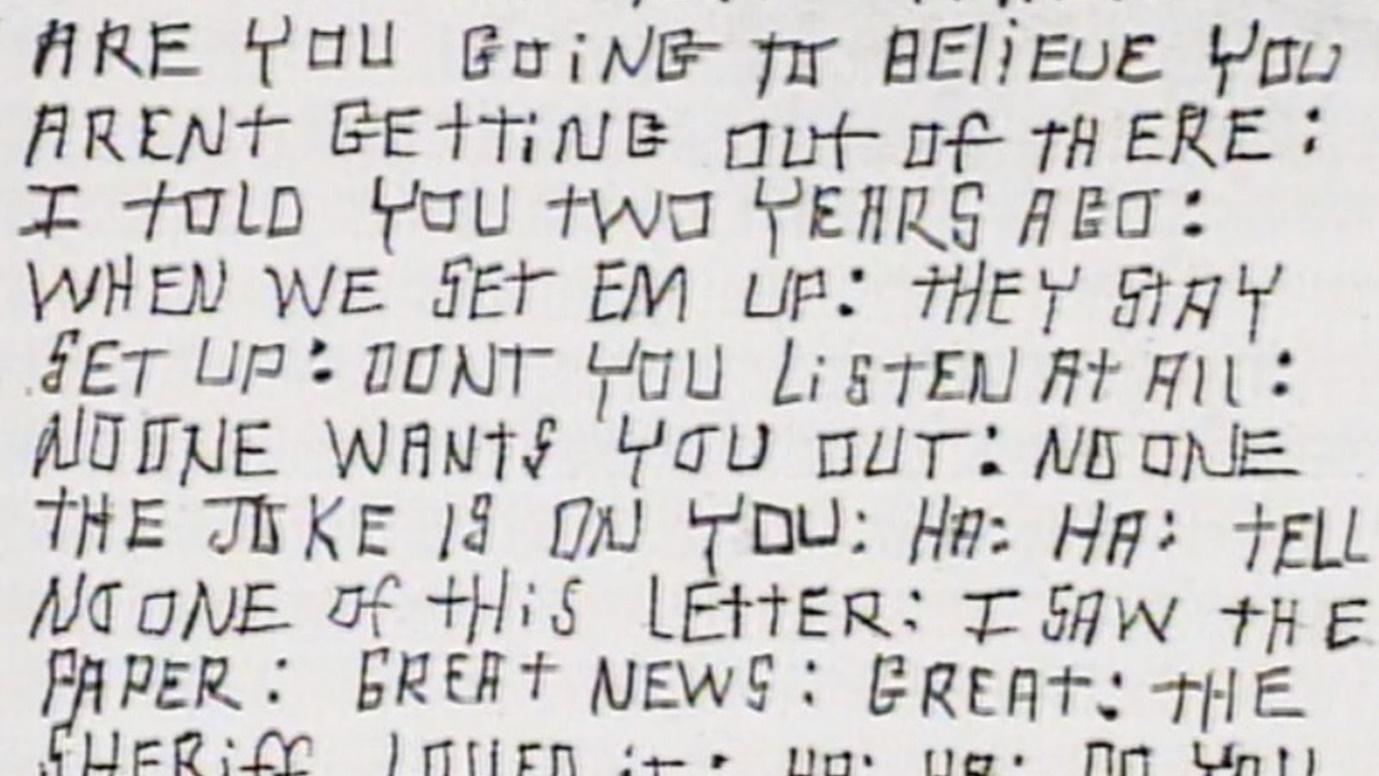 ARE YOU GOiNG tO BEliEUE YOU
ARENt GEttiNG OUt Of tHERE:
I tOLD YOU tWO YEARS AGO:
WHEN WE SEt EM UP: tHEY StAY
SET UP: DONT YOU LiStEN At All:
NOONE WANtS YOU OUT: NO ONE
tHE JOKE IS ON YOU: HA: HA: tELL
NO ONE Of tHiS LEttER: I SAW tHE
PAPER: GREAt NEWS: GREAt: tHE
SHERiff LOVED it: HA: HA: DO YOU